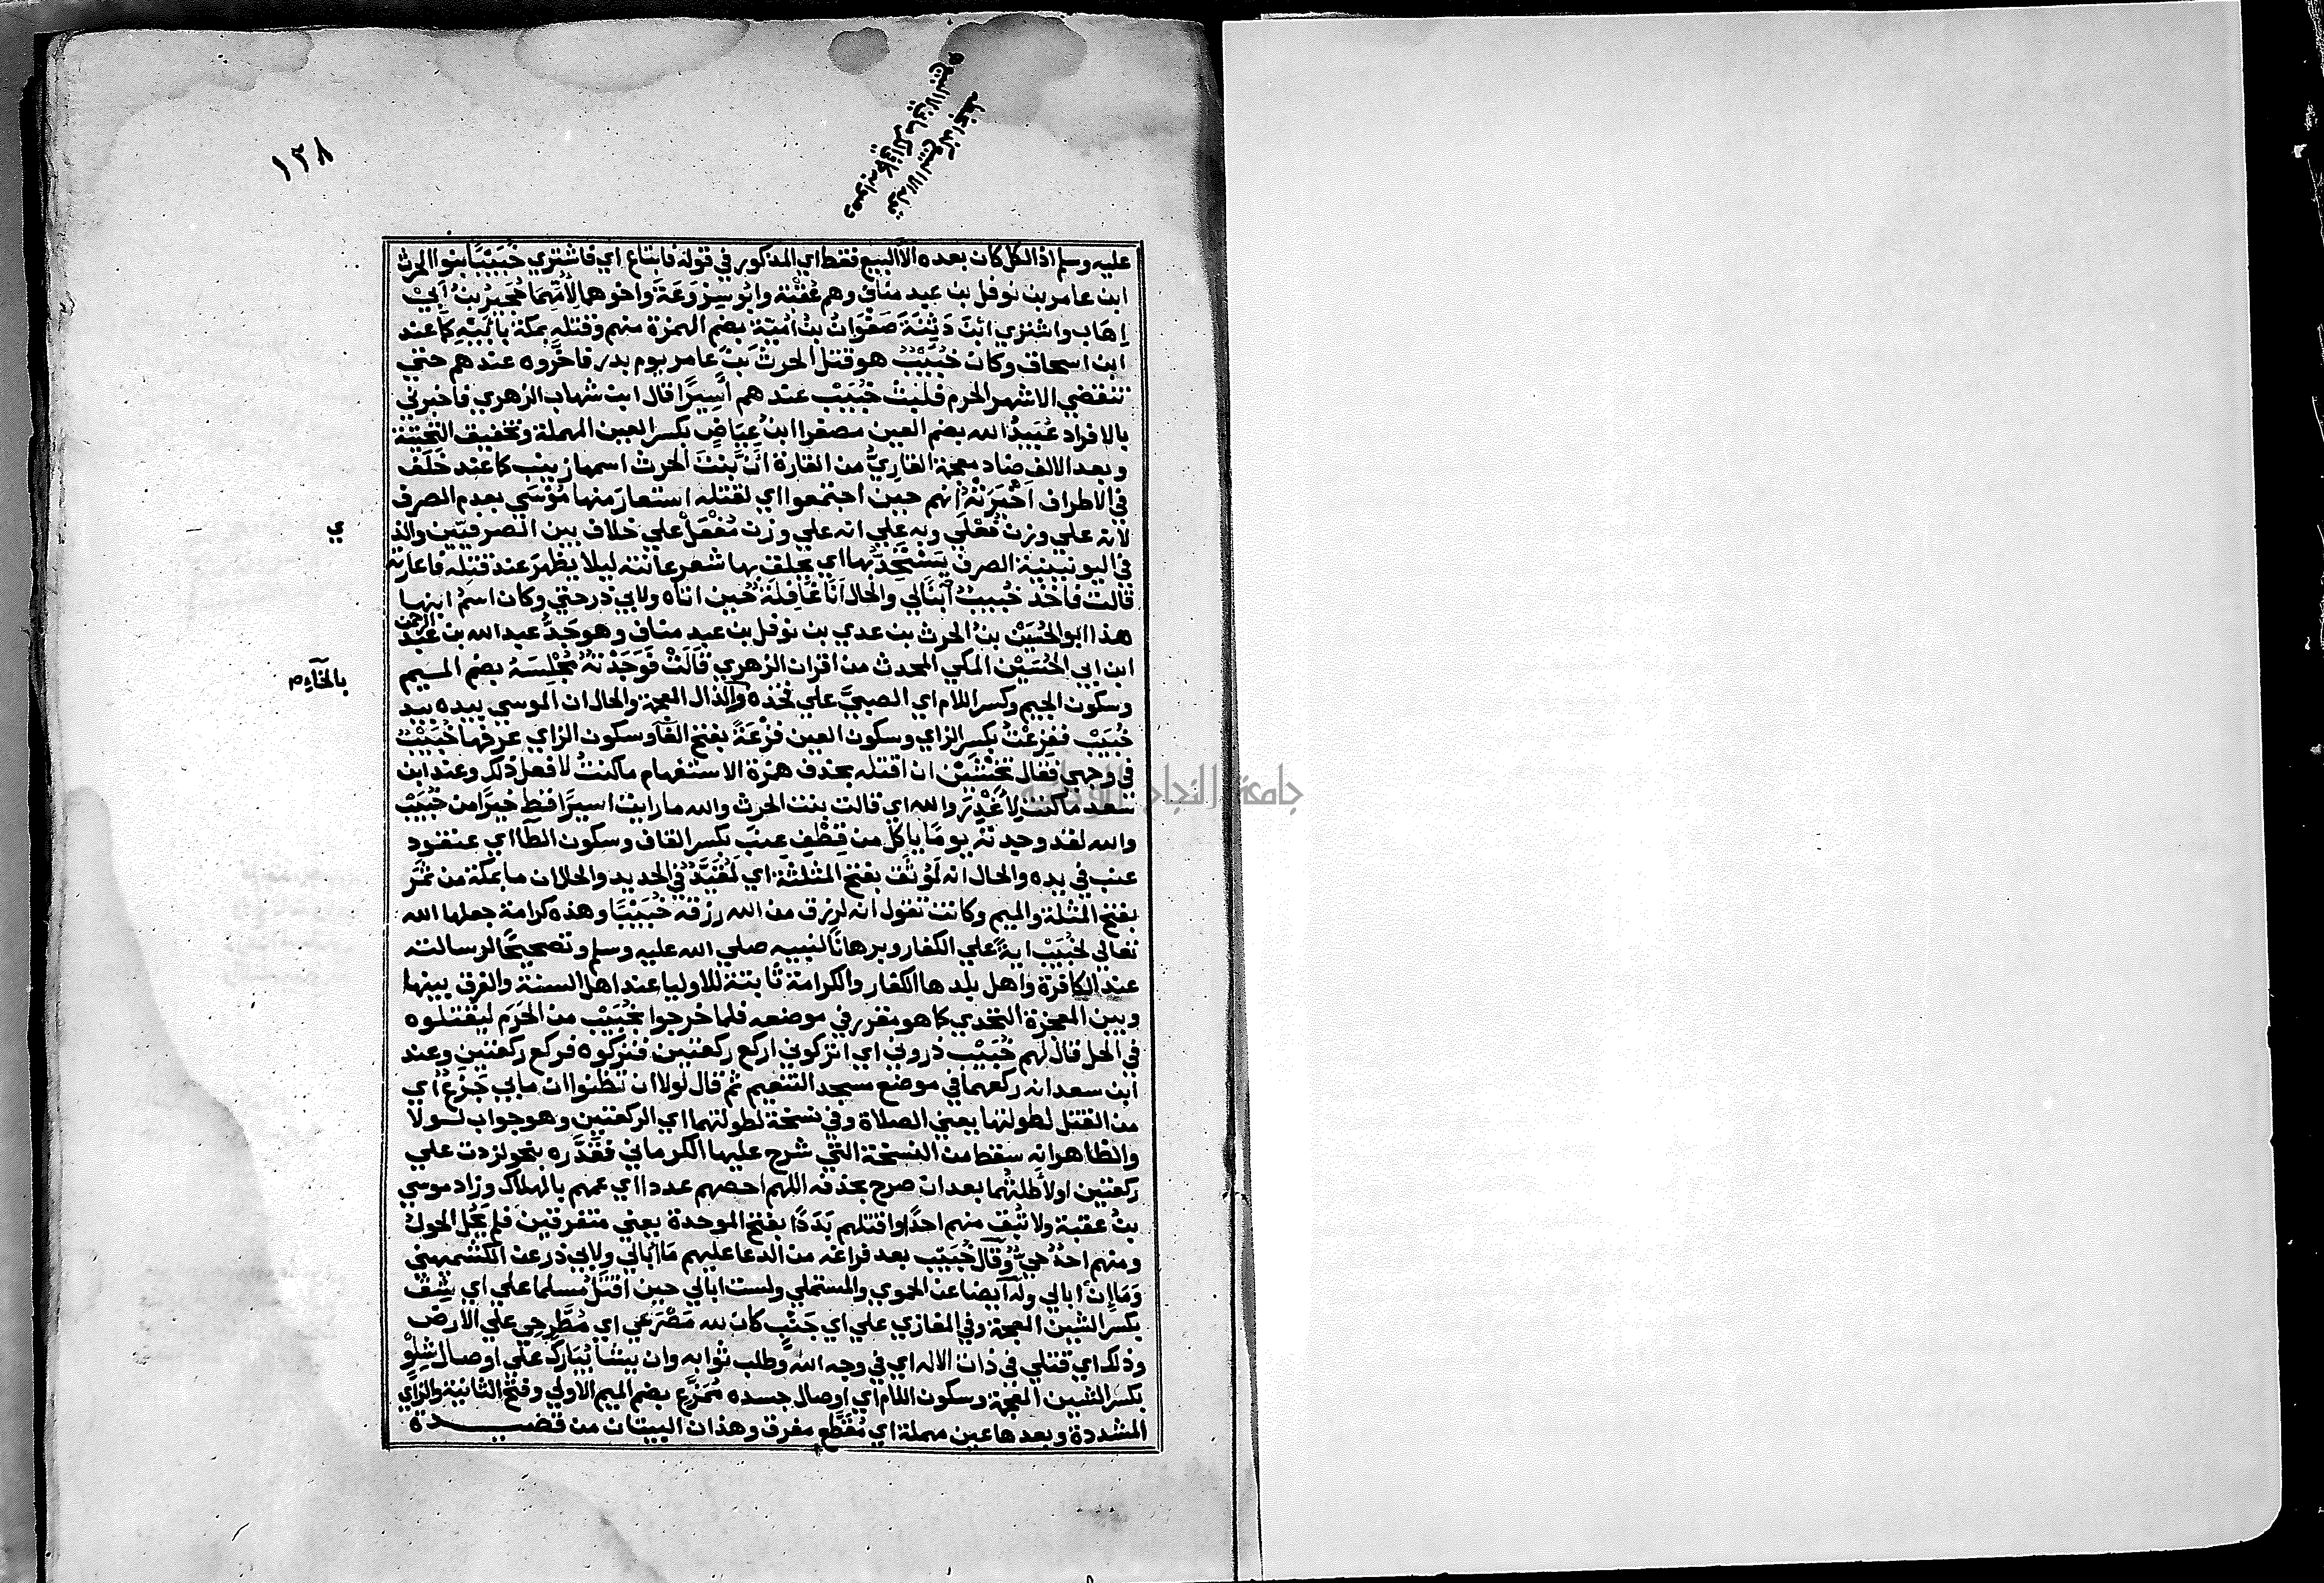 ١٣٨
عليه وسلم اذ الكل كان بعده الا البيع فقط اي المذكور في قوله فابتاع اي فاشتري خُبَيْبًا بنوا الحرث
ابن عامر بن نوفل بن عبد مناف وهم عُقْبَة وابو سِرْوَعَةَ واخوهما لِأُمِّهِمَا حُجَيْرُ بنُ اَبيْ
اِهَاب واشتري ابْنَ دَثِنَةَ صَفْوَانُ بنُ اُمَيَّة بضم الهمزة منهم وقتله بمكة بِاَبيْهِ كما عند
ابن اسحاق وكان خُبَيْبٌ هو قتل الحرث بنَ عامر يوم بدر فاخَّروه عندهم حتي
تنقضي الاشهر الحرم فلبث خُبَيْبٌ عندهم اَسِيْرًا قال ابن شهاب الزهري فاخبرني
بالافراد عُبَيدُ الله بضم العين مصغرا ابنُ عِيَاضٍ بكسر العين المهملة وتخفيف التحتية
وبعد الالف ضاد معجمة القارِيُّ من القارة اَنَّ بِنْتَ الحرث اسمها زينب كما عند خَلَفٍ
في الاطراف اَخْبَرَتْهُ انهم حين اجتمعوا اي لقتله استعارَ منها مُوْسَي بعدم الصرف
لانه علي وزن فُعْلَي وبه علي انه علي وزن مُفْعَلٍ علي خلاف بين الصرفيين والذ
ي
في اليونينية الصرف يَسْتَحِدُّ بها اي يحلق بها شعر عانته ليلا يظهرَ عند قتله فاعارته
قالت فاخذ خُبيبٌ ابْنًا لي والحال اَنَا غَافِلَة حين اتاه ولابي ذر حتي وكان اسمُ ابنها
هذا ابو الحُسَيْن بنُ الحرث بن عدي بن نوفل بن عبد مناف وهو جَدُّ عبد الله بن عَبْد الرحمن
ابن ابي الحُسَيْن المكي المحدث من اقران الزهري قَالَتْ فَوَجَدْتُهُ مُجْلِسَهُ بضم الميم
وسكون الجيم وكسر اللام اي الصبيَّ علي فخذه والذال المعجمة والحال ان الموسي بيده بيد
بالخاء م
خُبَيْب ففَزِعْتُ بكسر الزاي وسكون العين فَزْعَةً بفتح الفا وسكون الزاي عرفها خُبَيْبٌ
في وجهي فقال تَخْشَيْنَ ان اقتله بحذف همزة الاستفهام ما كنتُ لافعل ذلك وعند ابن
سعد ما كنت لاَغْدِرَ والله اي قالت بنت الحرث والله ما رايت اسيرًا قط خيرًا من خُبَيْب
والله لقد وجدته يومًا ياكل من قِطْفِ عِنَبٍ بكسر القاف وسكون الطا اي عنقود
عنب في يده والحال انه لَمُوْثَق بفتح المثلثة اي لَمُقَيَّدٌ في الحديد والحلان ما بمكة من ثَمَرٍ
بفتح المثلثة والميم وكانت تقول انه لرزق من الله رزقه خُبَيْبًا وهذه كرامة جعلها الله
تعالي لخُبَيْب ايةً علي الكفار وبرهانًا لنبيه صلي الله عليه وسلم وتصحيحًا لرسالته
عند الكافرة واهل بلدها الكفار والكرامة ثابتة للاوليا عند اهل السنة والفرق بينها
وبين المعجزة التحدي كما هو مقرر في موضعه فلما خرجوا بخُبَيْب من الحَرَم ليقتلوه
في الحل قال لهم خُبَيْب ذروني اي اتركوني اركع ركعتين فتركوه فركع ركعتين وعند
ابن سعد انه ركعهما في موضع مسجد التنعيم ثم قال لولا ان تظنوا ان ما بي جَزَعٌ اي
من القتل لطولتها يعني الصلاة وفي نسخة لطولتهما اي الركعتين وهو جواب لولا
والظاهر انه سقط من النسخة التي شرح عليها الكرماني فقَدَّره بنحو لزدت علي
ركعتين اولاَطلتُهما بعد ان صرح بحذفه اللهم احصهم عددا اي عمهم بالهلاك وزاد موسي
بنُ عقبة ولا تُبْق منهم احدًا واقتلهم بَدَدًا بفتح الموحدة يعني متفرقين فلم يَحُل الحولُ
ومنهم احدٌ حيٌّ وقال خُبَيْب بعد فراغه من الدعا عليهم مَا اُبَالي ولابي ذر عن الكشميهني
وَمَا اِنْ اُبَالي وله ايضا عن الحموي والمستملي ولست ابالي حين اُقْتَلُ مسلما علي اي شِقٍّ
بكسر الشين المعجمة وفي المغازي علي اي جَنْبٍ كان لله مَصْرَعي اي مَطْرَحِي علي الارض
وذلك اي قتلي في ذات الاله اي في وجه الله وطلب ثوابه وان يشأ يُبَارِك علي اوصال شِلْوٍ
بكسر الشين المعجمة وسكون اللام اي اوصال جسده مُمَزَّع بضم الميم الاولي وفتح الثانية والزاي
المشددة وبعدها عين مهملة اي مُقَطَّع مفرق وهذان البيتان من قصيدة
جامعة النجاح الوطنية